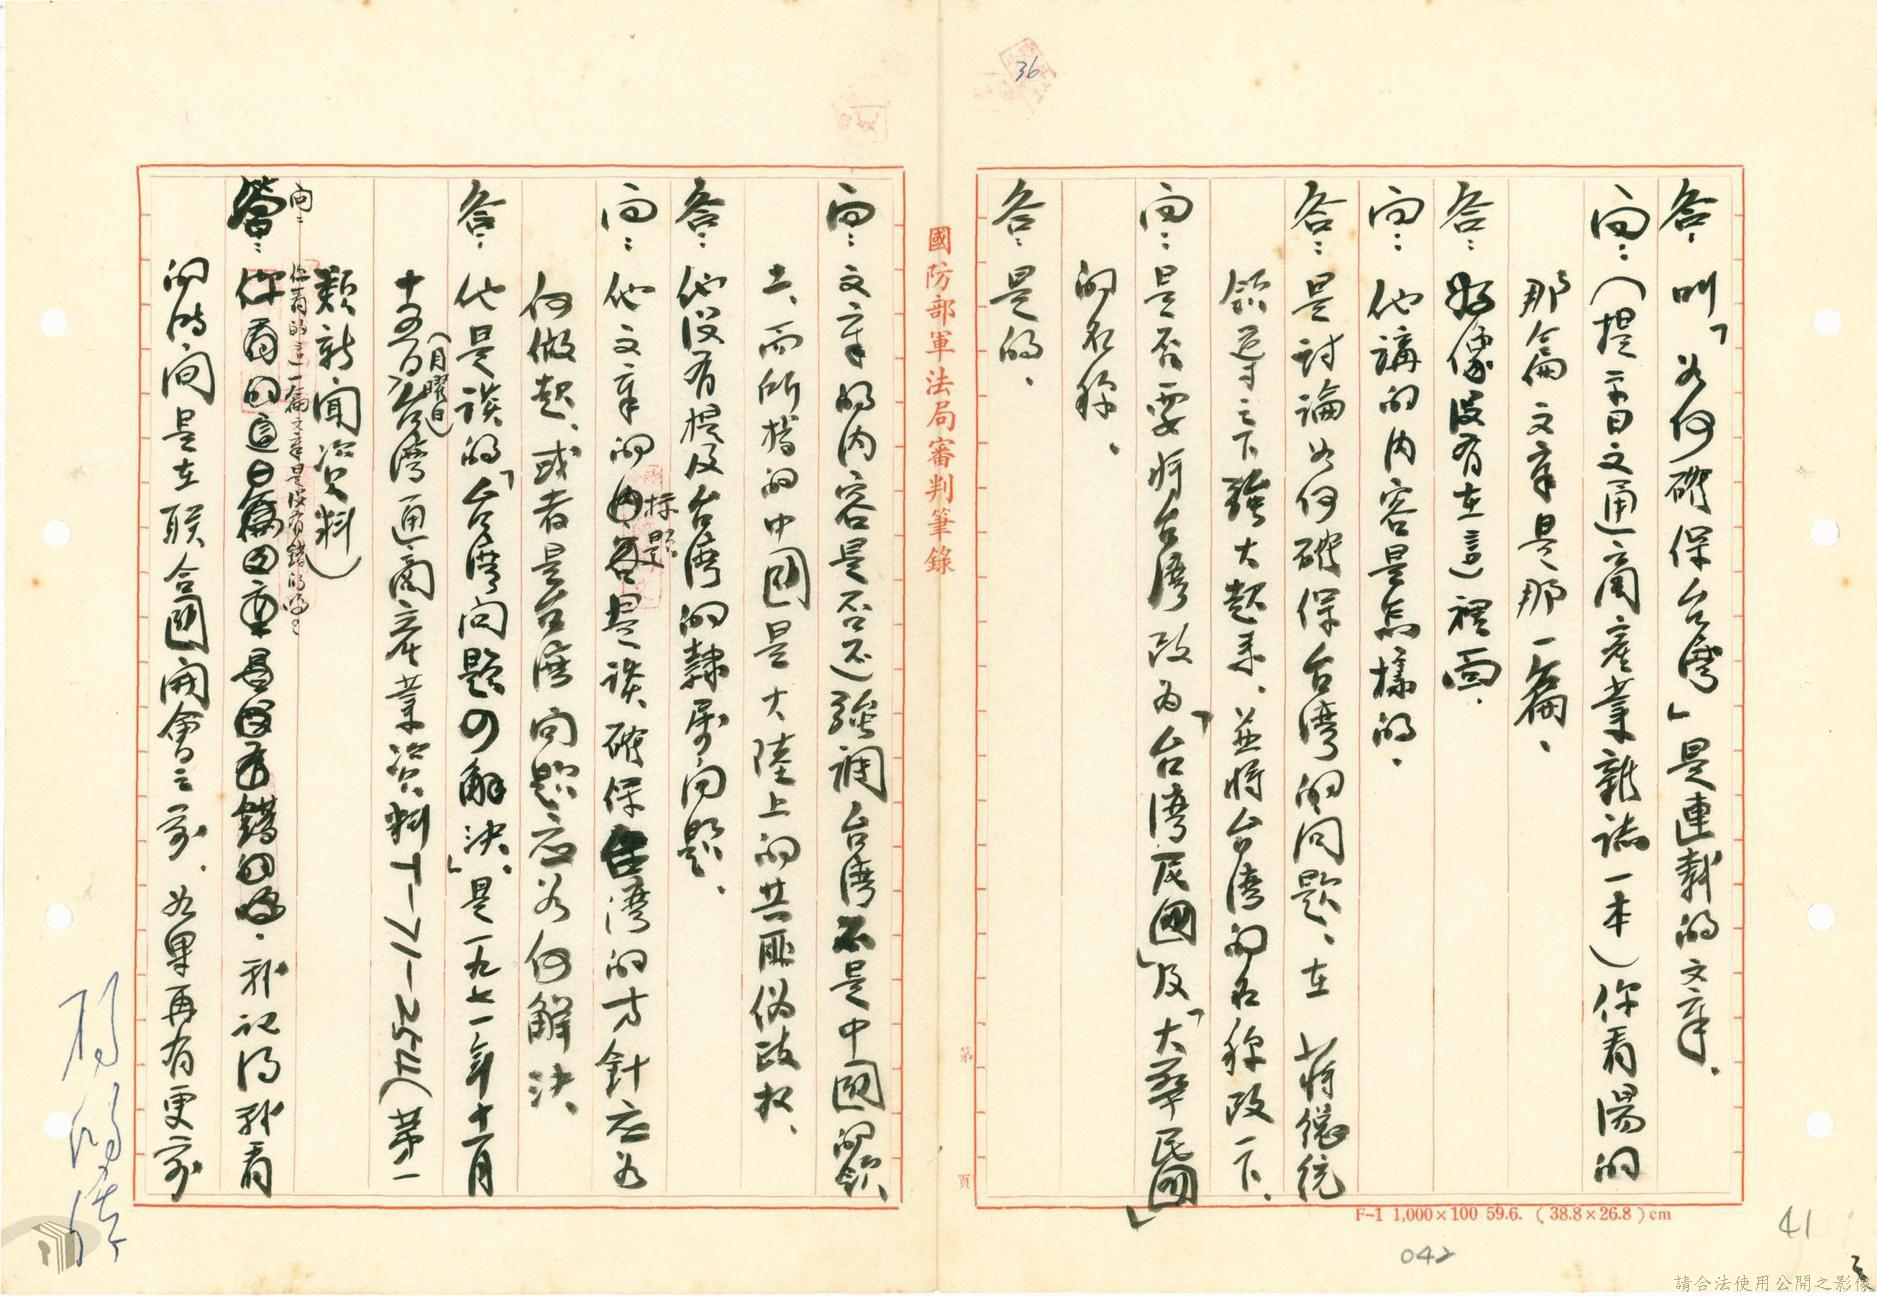 36
答：叫「如何確保台灣」是連載的文章．
問：（提示昔日文通商產業雜誌一本）你看湯的
那篇文章是那一篇、
答：好像沒有在這裡面．
問：他講的內容是怎樣的．
答：是討論如何確保台灣的問題、在 蔣總統
領導之下強大起來、並將台灣的名稱改一下．
問：是否要將台灣改為「台湾民國」及「大華民國」
的名称．
答：是的．
國防部軍法局審判筆錄
第 頁
問：文章的內容是否还強調台灣不是中國的領
土、而所指的中國是大陸上的共匪偽政权、
答：他沒有提及台灣的隸屬问题．
問：他文章的標題是談確保台灣的方針应如
何做起、或者是台湾问题应如何解決
答：他是談的「台湾问题の解決」．是一九七一年十一月
十五日（月曜日）台湾通商產業資料T－71－254）第一
類新聞資料）
問：你看的這一篇文章是沒有錯的嗎？
答：我記得我看
的時间是在联合國開會之前．如果再有更前
F-1 1,000×100 59.6. (38.8×26.8)cm
41
042
請合法使用公開之影像